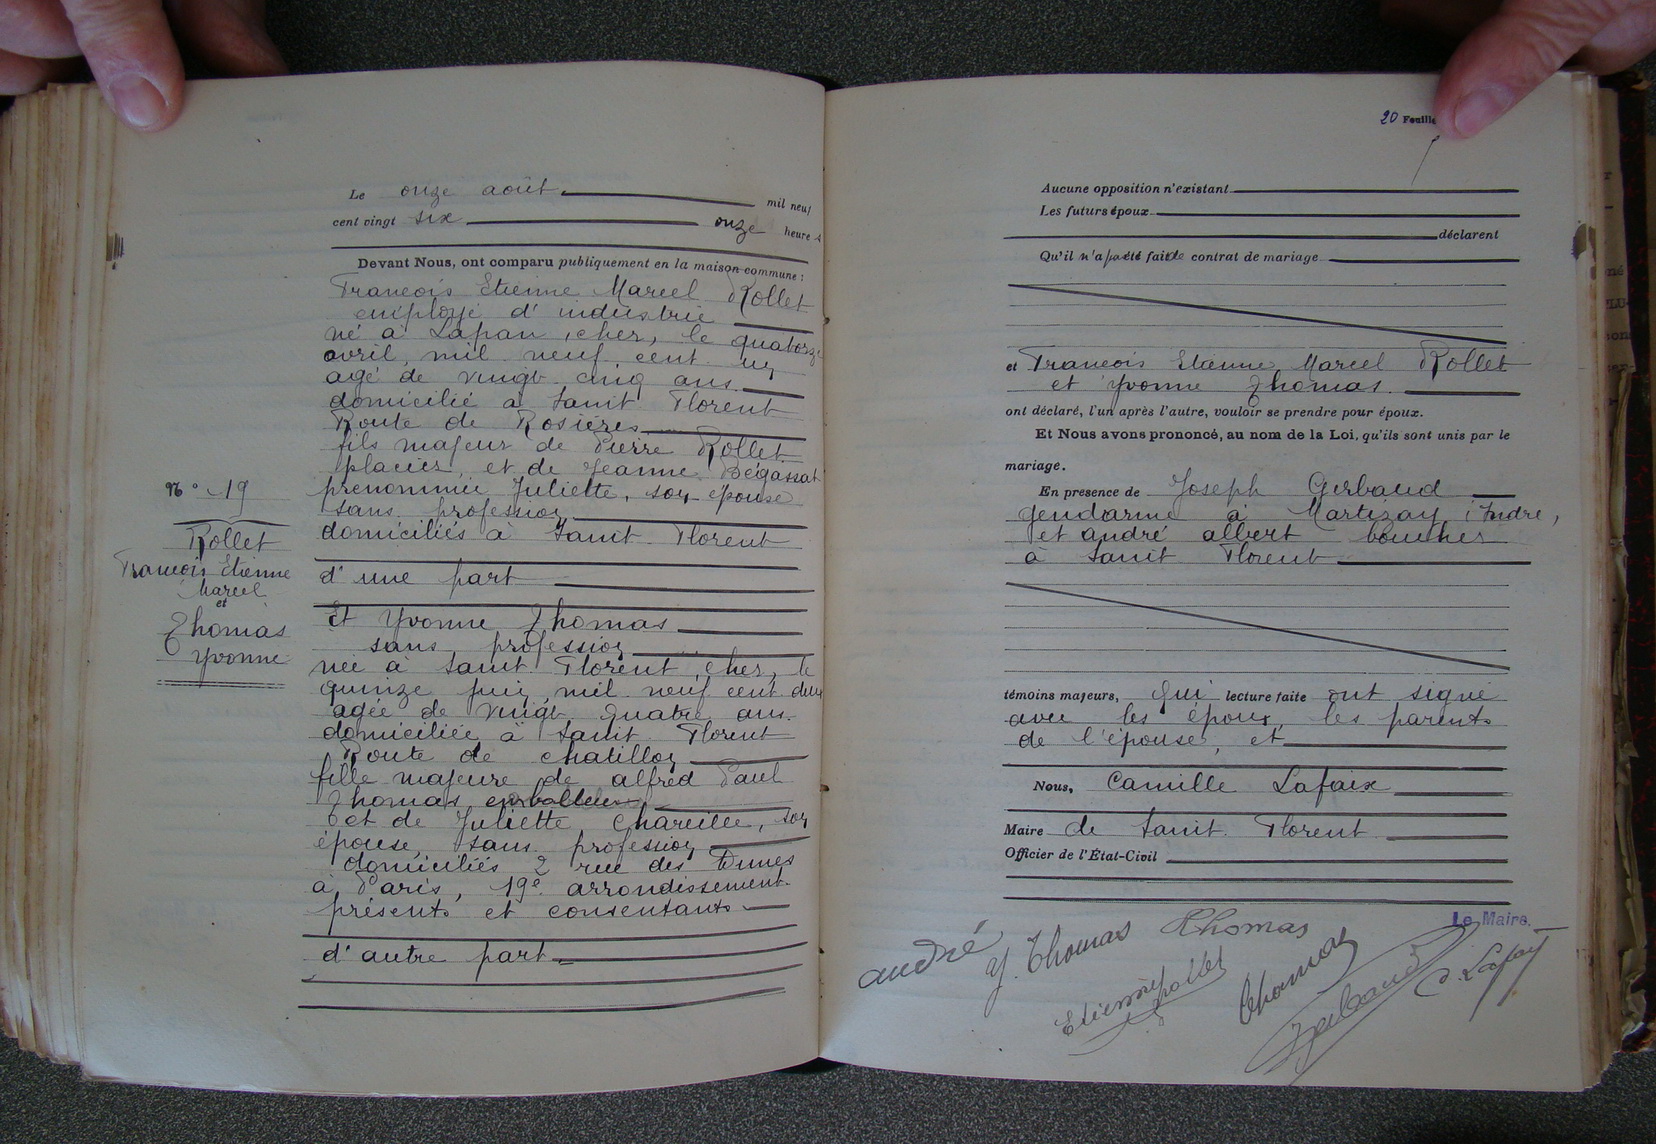 Le onze août mil neuf
cent vingt six onze heures
Devant Nous, ont comparu publiquement en la maison commune :
Francois Etienne Marcel Rollet
employé d'industrie
né à Lapan, cher, le quatorze
avril, mil neuf cent un
agé de vingt cinq ans.
domicilié à Saint Florent
Route de Rosières
fils majeur de Pierre Rollet
placier, et de Jeanne Bégassat
prénommée Juliette, son épouse
sans profession
domiciliés à Saint Florent
d'une part
Et Yvonne Thomas
sans profession
née à Saint Florent, cher, le
quinze juin mil neuf cent deux
agée de vingt quatre ans.
domiciliée à Saint Florent
Route de chatillon
fille majeure de alfred Paul
Thomas emballeur
et de Juliette Chareille, son
épouse, sans profession
domiciliés 2 rue des Dunes
à Paris, 19e arrondissement
présents et consentants
d'autre part
N° 19
Rollet
Francois Etienne
Marcel
et
Thomas
Yvonne
20 Feuille
Aucune opposition n'existant
Les futurs époux
déclarent
Qu'il n'a pas été fait de contrat de mariage
et Francois Etienne Marcel Rollet
et Yvonne Thomas.
ont déclaré, l'un après l'autre, vouloir se prendre pour époux.
Et Nous avons prononcé, au nom de la Loi, qu'ils sont unis par le
mariage.
En presence de Joseph Gerbaud
gendarme à Martizay, Indre,
et andré albert boucher
à Saint Florent
témoins majeurs, qui lecture faite ont signé
avec les époux, les parents
de l'épouse, et
Nous, Camille Lafaix
Maire de Saint Florent
Officier de l'État-Civil
Le Maire.
andré
Y. Thomas
Thomas
Etienne Rollet
Thomas
Gerbaud
C. Lafaix